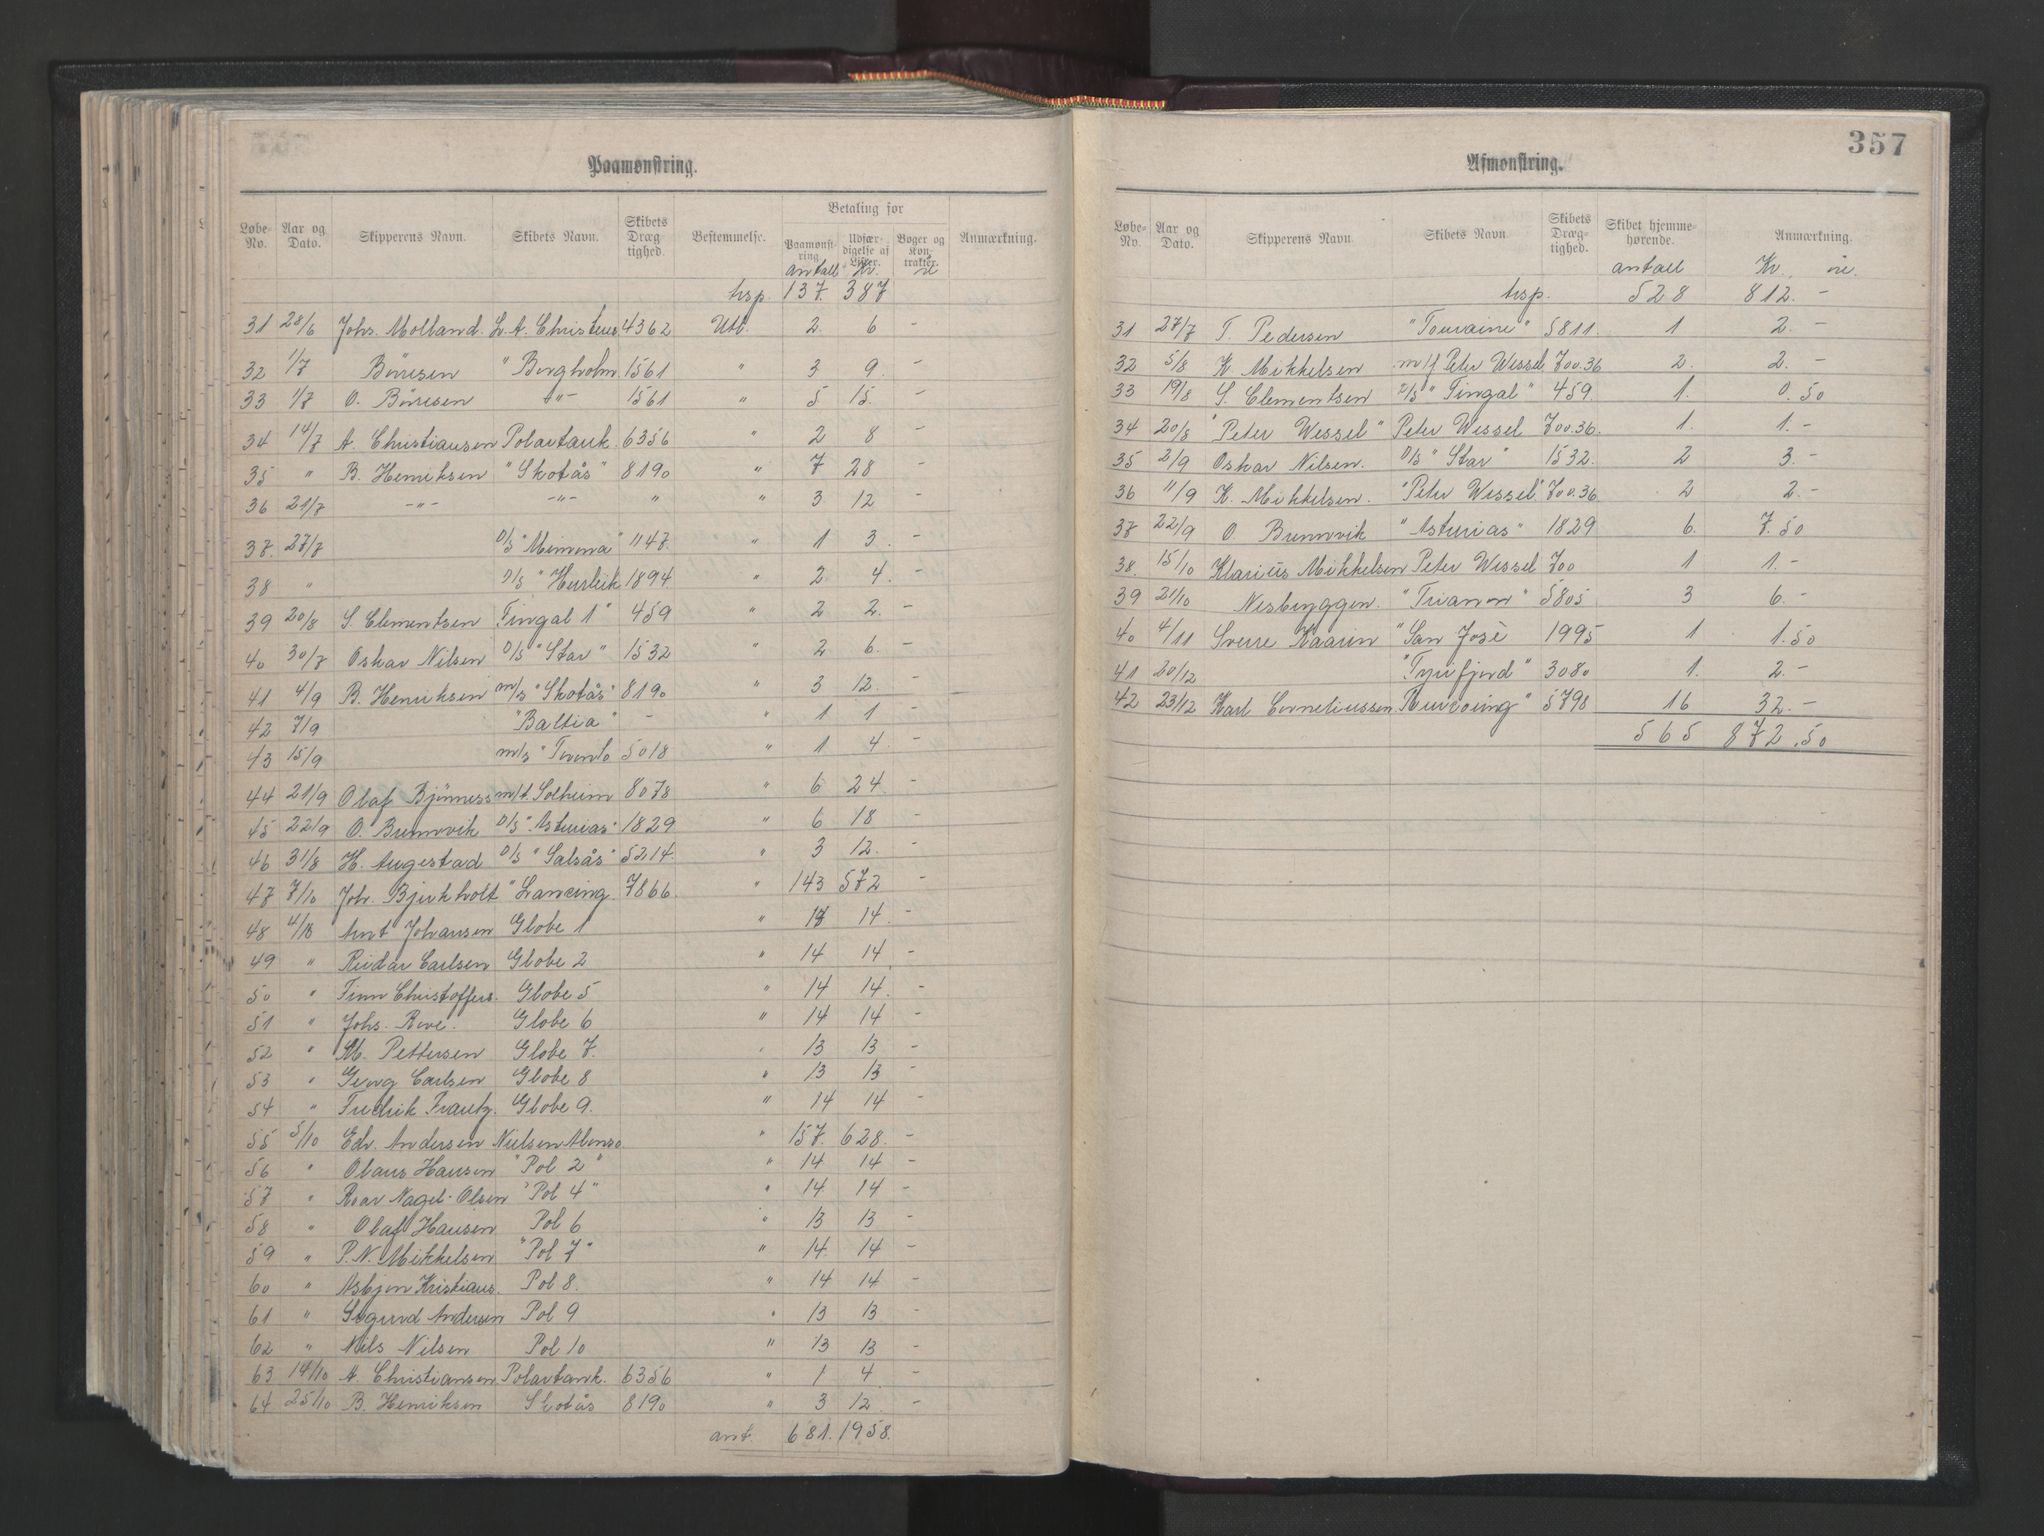 Paamønstring.
Løbe-No. Aar og Dato. Skipperens Navn. Skibets Navn. Skibets Dræg-tighed. Bestemmelse. Betaling for Paamønst-ring Udfær-digelse af Lister. Bøger og Kon-trakter. Anmærkning.
antall Kr. øre
trsp. 137. 387
31 28/6 Johs. Molland. L. A. Christens 4362 Utl. 2. 6 -
32 1/7 Börresen "Borgholm 1561 " 3 9. -
33 1/7 O. Börresen -"- 1561 " 5 15. -
34 14/7 A. Christiansen Polartank 6356 " 2 8 -
35 " B. Henriksen "Skotås" 8190 " 7 28 -
36 21/7 -"- -"- " " 3 12 -
37. 27/7 D/S "Mimona" 1147. " 1 3. -
38 " D/S "Hurleik 1894 " 2 4. -
39 20/8 S. Clementsen Fingal 1" 459 " 2 2. -
40 30/7 Oskar Nilsen D/S "Star" 1532 " 2 6. -
41 4/9 B. Henriksen m/s "Skotås" 8190 " 3 12. -
42 7/9 "Baltia" - " 1 1 -
43 15/9 m/s "Toronto 5018 " 1 4. -
44 21/9 Olaf Bjönness m/t. Solheim 8078 " 6 24 -
45 22/9 O. Brunvik D/S "Asturias" 1829 " 6 18 -
46 31/8 H. Augestad D/S "Salsås" 5214. " 3 12. -
47 7/10 Joh. Bjerkholt "Lancing 7866. " 143 572 -
48 4/10 Arnt Johansen Globe 1 " 14 14. -
49 " Reidar Carlsen Globe 2 " 14 14 -
50 " Finn Christoffers. Globe 5 " 14 14. -
51 " Johs. Rove. Globe 6 " 14 14 -
52 " M. Pettersen Globe 7. " 13 13 -
53 " Georg Carlsen Globe 8 " 13 13 -
54 " Fredrik Frantz. Globe 9. " 14 14 -
55 5/10 Edv. Andersen Nielsen Alonso " 157. 628. -
56 " Olaus Hansen "Pol 2" " 14 14 -
57 " Roar Nagel-Olsen "Pol 4" " 14 14 -
58 " Olaf Hansen Pol 6 " 13 13 -
59 " P. N. Mikkelsen "Pol 7" " 14 14 -
60 " Asbjørn Kristians. Pol 8. " 14 14 -
61 " Sigurd Andersen Pol 9 " 13 13 -
62 " Nils Nilsen Pol 10 " 13 13 -
63 14/10 A. Christiansen Polartank. 6356 " 1 4 -
64 25/10 B. Henriksen Skotås 8190 " 3 12. -
ant. 681. 1958.
357
Afmønstring.
Løbe-No. Aar og Dato. Skipperens Navn Skibets Navn Skibets Dræg-tighed. Skibet hjemme-hørende. Anmærkning.
antall Kr. øre.
trsp. 528 812. -
31 27/7 T. Pedersen "Touraine" 5811. 1 2. -
32 5/8 K. Mikkelsen m/f Peter Wessel 700.36 2. 2. -
33 19/8 S. Clementsen D/S "Fingal" 459 1. 0.50
34 20/8 "Peter Wessel" Peter Wessel 700.36. 1. 1. -
35 2/9 Oskar Nilsen. D/S "Star" 1532. 2 3. -
36 11/9 K. Mikkelsen. "Peter Wessel" 700.36 2 2. -
37 22/9 O. Brunvik "Asturias" 1829 6. 7.50
38. 15/10 Klarius Mikkelsen Peter Wessel 700 1 1. -
39 21/10 Nesbryggen. "Trianon" 5805 3 6. -
40 4/11 Sverre Kaarin "San José 1995 1 1.50
41 20/12 "Tyrifjord" 3080 1. 2. -
42 23/12 Karl Corneliussen 5798 16 32. -
565 872.50